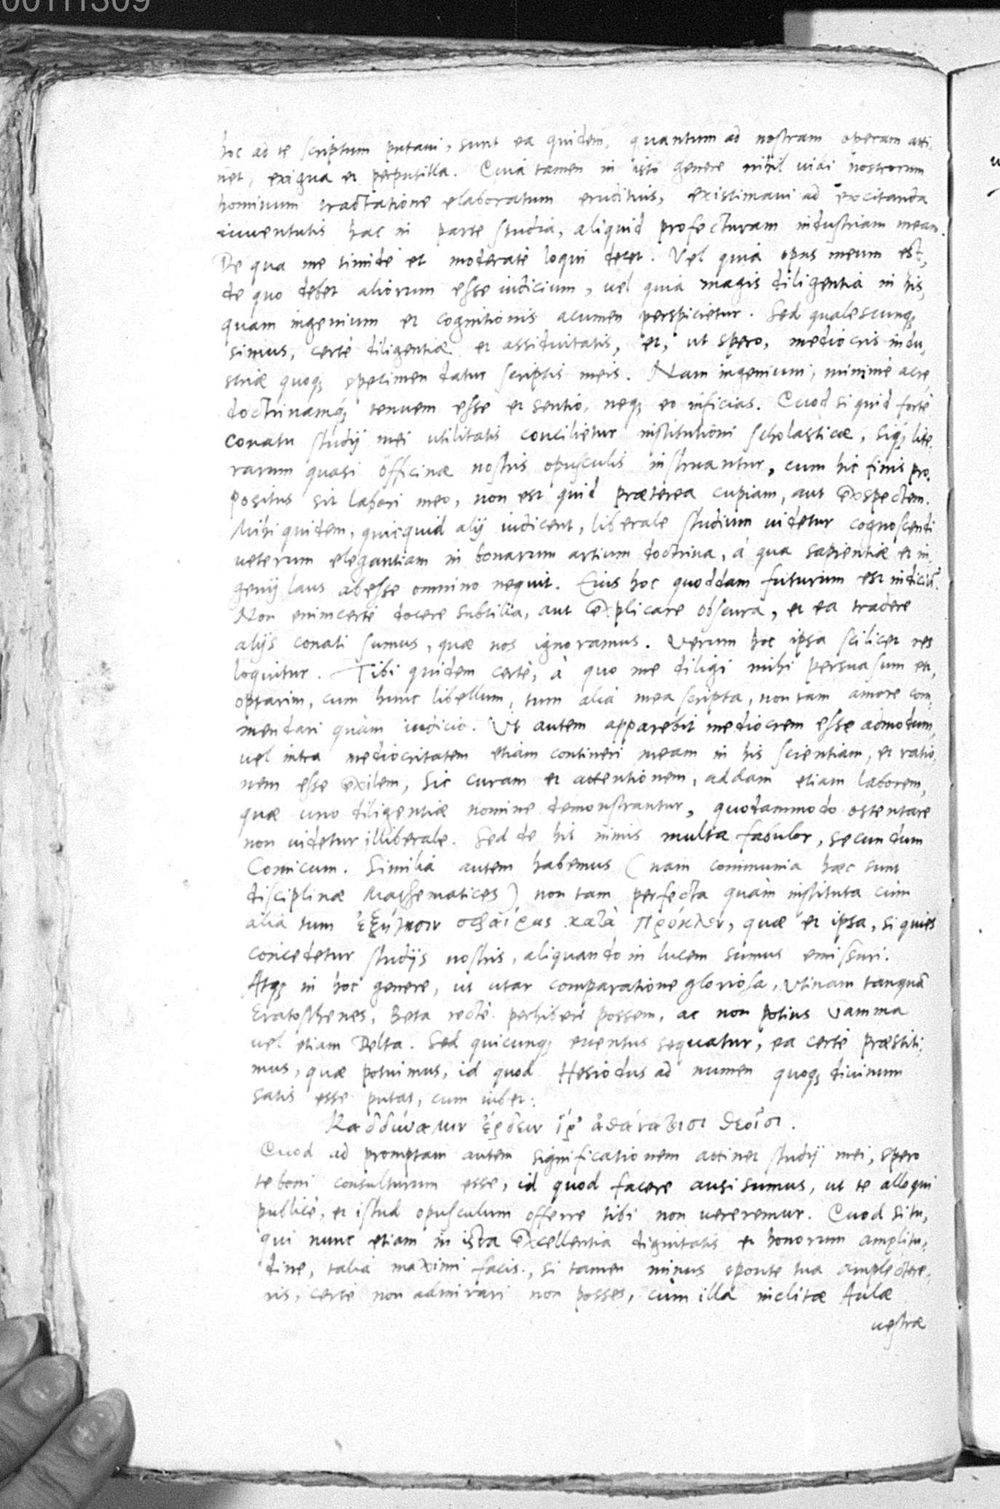 00111309
hoc ad te scriptum putavi, sunt ea quidem, quantum ad nostram operam atti,
net, exigua et perpusilla. Quia tamen in isto genere nihil vidi nostrorum
hominum tractatione elaboratum eruditius, existimavi ad excitanda
iuventutis hac in parte studia, aliquid profecturam industriam meam.
De qua me timidè et moderatè loqui decet. Vel quia opus meum est,
de quo debet aliorum esse iudicium, vel quia magis diligentia in his,
quam ingenium et cognitionis acumen perspicietur. Sed qualescunq;
simus, certè diligentiæ et assiduitatis, et, ut spero, mediocris indu,
striæ quoq; specimen datur scriptis meis. Nam ingenium, minimè acre
doctrinamq; tenuem esse et sentio, neq; eo inficias. Quod si quid fortè
conatu studij mei utilitatis concilietur institutioni scholasticæ, siq; lite,
rarum quasi officinæ nostris opusculis instruantur, cum hic finis pro,
positus sit labori meo, non est quid præterea cupiam, aut exspectem.
Mihi quidem, quicquid alij iudicent, liberale studium videtur cognoscendi
veterum elegantiam in bonarum artium doctrina, à qua sapientiæ et in
genij laus abesse omnino nequit. Eius hoc quoddam futurum est indiciū.
Non enim certè docere subtilia, aut explicare obscura, et ea tradere
alijs conati sumus, quæ nos ignoramus. Verum hoc ipsa scilicet res
loquitur. Tibi quidem certè, à quo me diligi mihi persuasum et,
optarim, cum hunc libellum, tum alia mea scripta, non tam amore com,
mendari quàm iudicio. Ut autem apparebit mediocrem esse admodum,
vel intra mediocritatem etiam contineri meam in his scientiam, et ratio,
nem esse exilem, Sic curam et attentionem, addam etiam laborem,
quæ uno diligentiæ nomine demonstrantur, quodammodo ostentare
non videtur illiberale. Sed de his nimis multa fabulor, secundum
Comicum. Similia autem habemus (nam communia hæc sunt
disciplinæ Mathematices) non tam perfecta quàm instituta cùm
alia tum ἐξήγησιν σφαίρας κατὰ Πρόκλον, quæ et ipsa, si quies
concedetur studijs nostris, aliquando in lucem sumus emissuri.
Atq; in hoc genere, ut utar comparatione gloriosa, Utinam tanquā
Eratosthenes, Beta rectè perhiberi possem, ac non potius Gamma
vel etiam Delta. Sed quicunq; eventus sequatur, ea certè præstiti,
mus, quæ potuimus, id quod Hesiodus ad numen quoq; divinum
satis esse putat, cum iubet:
Καδδύναμιν ἔρδειν ἱέρ᾽ ἀθανάτοισι θεοῖσι.
Quod ad promptam autem significationem attinet studij mei, spero
te boni consulturum esse, id quod facere ausi sumus, ut te alloqui
publicè, et istud opusculum offerre tibi non vereremur. Quod si tu,
qui nunc etiam in ista excellentia dignitatis et honorum amplitu,
dine, talia maximi facis, si tamen minus sponte tua amplectere,
ris, certè non admirari non posses, cùm illa inclitæ Aulæ
vestræ